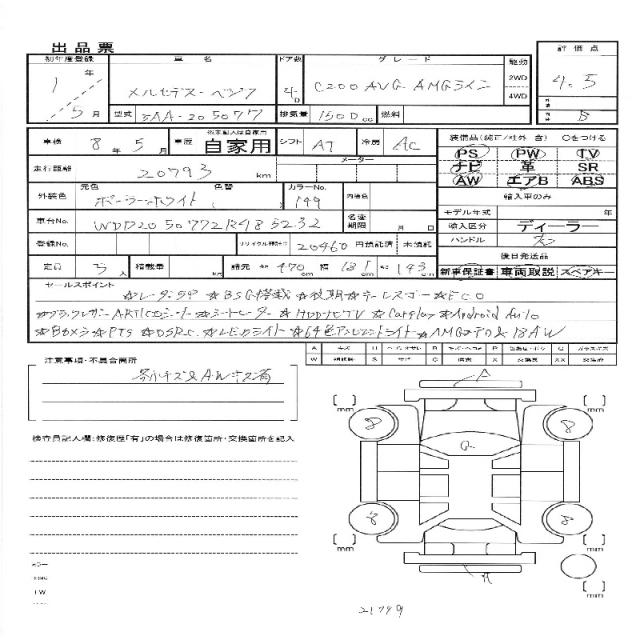 出品票
初年度登録 車名 ドア数 グレード 駆動 評価点
1年 メルセデス-ベンツ 4D C200 AVG AMGライン 2WD 4WD 4.5
5月 型式 5AA-205077 排気量 1500cc 燃料 B
車検 8年5月 車歴 自家用 シフト AT 冷房 AC
走行距離 20793 km メーター
外装色 元色 ポーラーホワイト 色替 カラーNo. 149 内装色
車台No. 名変期限 月 日
登録No. リサイクル預託金 20460 円預託済 未預託
定員 5人 積載量 諸元 長 470 cm 幅 181 cm 高 143 cm
装備品(純正/社外 含) ○をつける
PS PW TV
ナビ 革 SR
AW エアB ABS
輸入車のみ
モデル年式 年
輸入区分 ディーラー
ハンドル 右
後日発送品
新車保証書 車両取説 スペアキー
セールスポイント
☆レーダーSP ☆BSG搭載 ☆ ☆キーレスゴー ☆ECO
☆シートヒーター ☆HDDナビTV ☆Carplay ☆Android Auto
☆Bカメラ ☆PTS ☆DSRC ☆LEDライト ☆64色アンビエントライト ☆AMGエアロ&18AW
注意事項・不具合箇所
小キズ&A.Wキズ有
検査員記入欄:修復歴「有」の場合は修復箇所・交換箇所を記入
A U B P Q
W S C X XX
[ ] mm [ ] mm
A
8 8
G
8 8
[ ] mm [ ] mm
A
21799